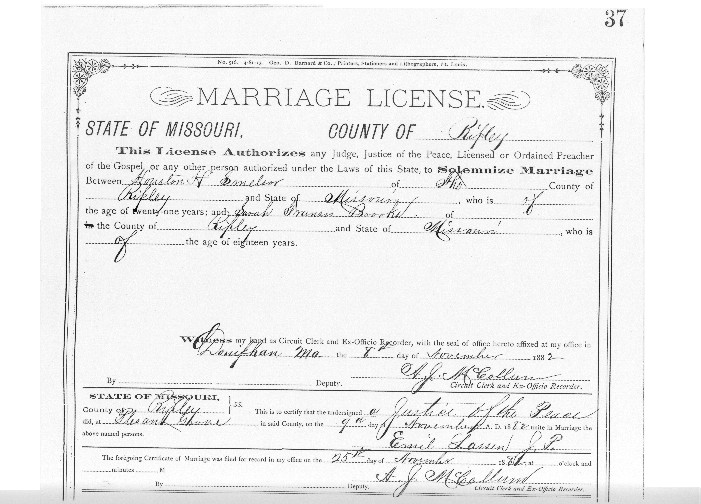 37
No. 516. Geo. D. Barnard & Co., Printers, Stationers and Lithographers, St. Louis.
MARRIAGE LICENSE.
STATE OF MISSOURI, COUNTY OF Ripley
This License Authorizes any Judge, Justice of the Peace, Licensed or Ordained Preacher
of the Gospel, or any other person authorized under the Laws of this State, to Solemnize Marriage
Between Houston H of the County of
Ripley and State of Missouri, who is of
the age of twenty-one years; and Sarah Brooks of
in the County of Ripley and State of Missouri, who is
of the age of eighteen years.
Witness my hand as Circuit Clerk and Ex-Officio Recorder, with the seal of office hereto affixed at my office in
Doniphan Mo the 8th day of November 1882
A. J. McCollum
By Deputy. Circuit Clerk and Ex-Officio Recorder.
STATE OF MISSOURI,
County of Ripley ss. This is to certify that the undersigned a Justice of the Peace
did, at Pleasant Grove in said County, on the 9th day of November A. D. 188 unite in Marriage the
above named persons. Emil Larsen J. P.
The foregoing Certificate of Marriage was filed for record in my office on the 25th day of November 188 at o'clock and
minutes M A. J. McCollum
By Deputy. Circuit Clerk and Ex-Officio Recorder.